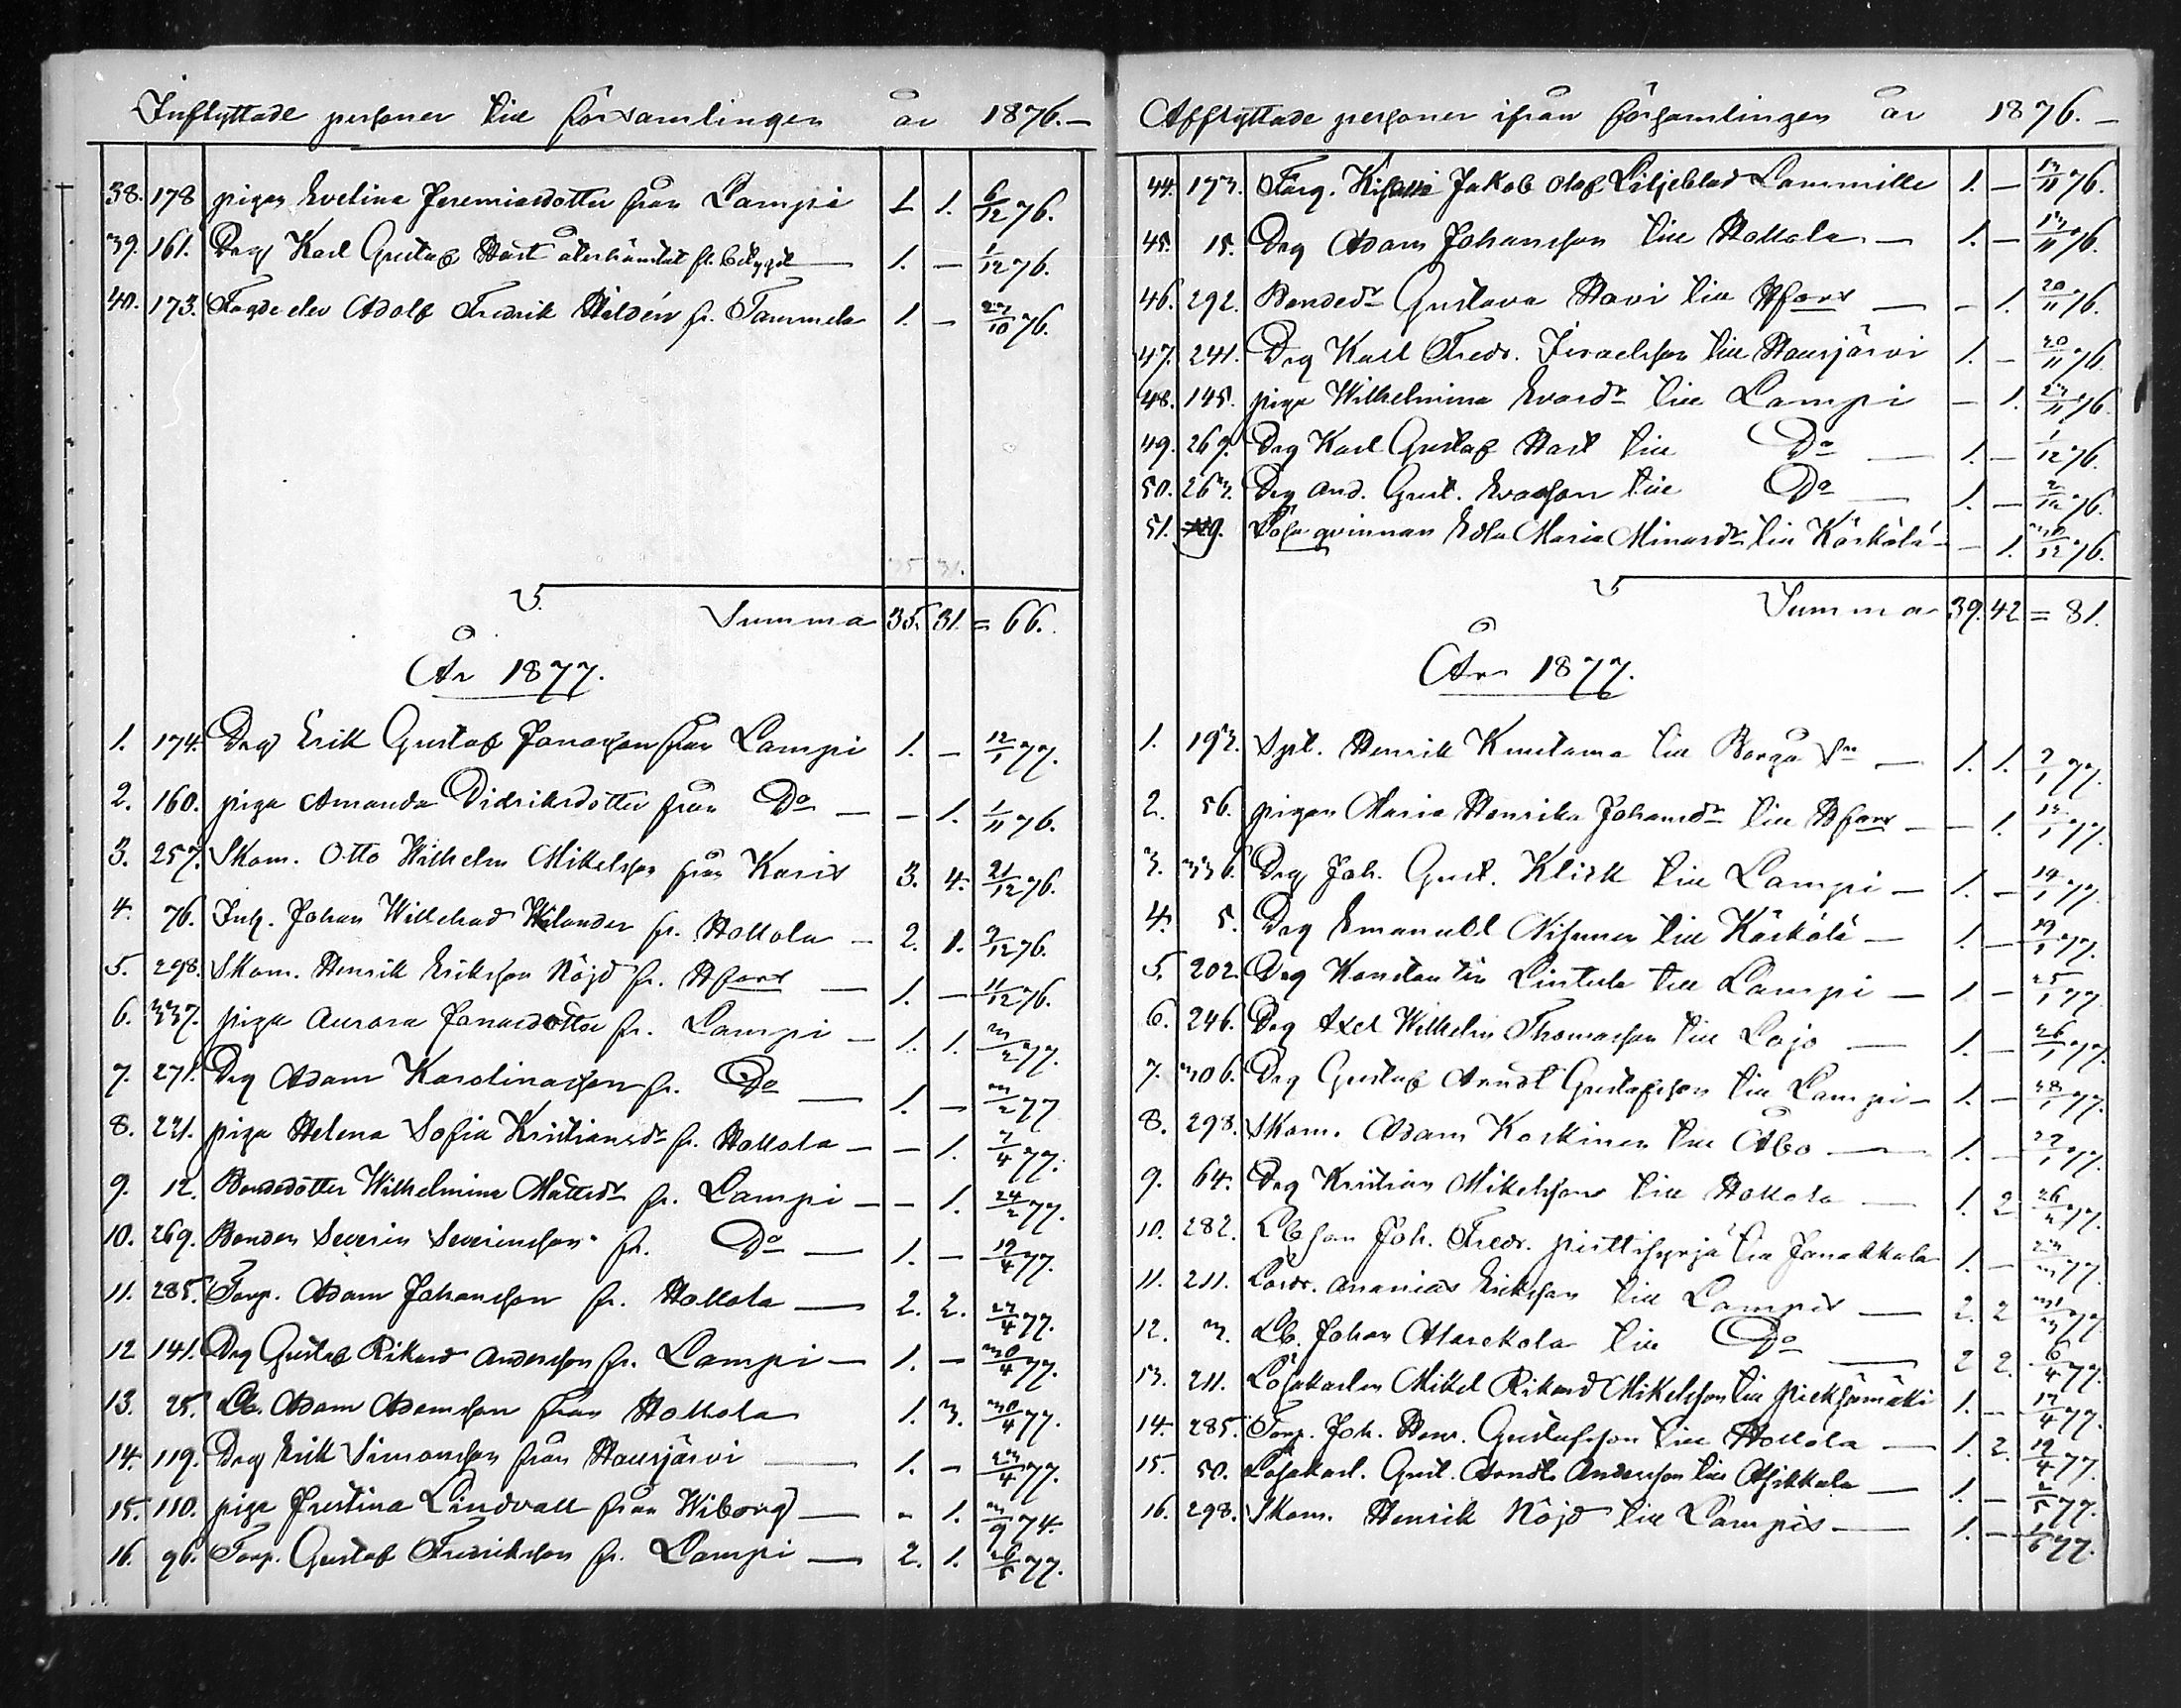 Inflyttade personer till församlingen år 1876.—
38. 178 pigan Evelina Jeremiasdotter från Lampi 1 1. 6/12 76.
39. 161. Drg Karl Gustaf Hast återhämtat fl. betyget — 1. — 1/12 76.
40. 173. Fogde elev Adolf Fredrik Hildén fr. Tammela 1. — 27/10 76.
35 31.
Summa 35. 31. = 66.
År 1877.
1. 174. Drg Erik Gustaf Jonasson från Lampi 1. — 12/1 77.
2. 160. piga Amanda Didriksdotter från Do — — 1. 1/11 76.
3. 257. Skom. Otto Wilhelm Mikelsson från Karis 3. 4. 21/12 76.
4. 76. Inh. Johan Willehad Wilander fr. Hollola — 2. 1. 9/12 76.
5. 298. Skom. Henrik Eriksson Nöjd fr. Hfors — 1. — 11/12 76.
6. 337. piga Aurora Jonasdotter fr. Lampi — 1. 1. 3/2 77.
7. 271. Drg Adam Karolinasson fr. Do — 1. — 3/2 77
8. 221. piga Helena Sofia Kristiansdr fr. Hollola — — 1. 7/4 77.
9. 12. Bondedotter Wilhelmina Mattsdr fr. Lampi — — 1. 24/2 77.
10. 269. Bonden Severin Severinsson fr. Do — 1. — 19/4 77.
11. 285. Torp. Adam Johansson fr. Hollola — 2. 2. 27/4 77.
12 141. Drg Gustaf Rikard Andersson fr. Lampi — 1. — 30/4 77.
13. 25. Lb. Adam Adamsson från Hollola 1. 3. 30/4 77.
14. 119. Drg Erik Simonsson från Hausjärvi — 1. — 23/4 77.
15. 110. piga Justina Lindvall från Wiborg — - 1. 3/9 74.
16. 96. Torp. Gustaf Fredriksson fr. Lampi — 2. 1. 26/5 77.
Afflyttade personer ifrån församlingen år 1876.—
44. 173. Färg. Jakob Olof Liljeblad 1. — 13/11 76.
45. 15. Drg Adam Johansson till Hollola — 1. — 13/11 76.
46. 292. Bondedr Gustava Hovi till Hfors — - 1. 20/11 76.
47. 241. Drg Karl Fredr. Israelsson till Hausjärvi 1. — 20/11 76.
48. 145. piga Wilhelmina Evardr till Lampi — 1. 27/11 76.
49. 269. Drg Karl Gustaf Hast till Do — 1. — 1/12 76.
50. 263. Drg And. Gust. Evasson till Do — 1. — 2/12 76.
51. Lösa qvinnan Edla Maria Minasdr till Kärkölä — — 1. 30/12 76.
Summa 39. 42 = 81.
År 1877.
1. 193. Spl. Henrik Kuutama till Borgå Sn — 1. 1. 2/1 77.
2. 56. pigan Maria Henrika Johansdr till Hfors — — 1. 13/1 77.
3. 336. Drg Joh. Gust. Klick till Lampi — 1. — 19/1 77.
4. 5. Drg Emanuel Nisunen till Kärkölä — 1. — 19/1 77.
5. 202. Drg Konstantin Lintula till Lampi — 1. — 25/1 77
6. 246. Drg Axel Wilhelm Thomasson till Lojo — 1. — 26/1 77.
7. 306. Drg Gustaf Arndt Gustafsson till Lampi — 1. — 28/1 77.
8. 298. Skom. Adam Koskinen till Åbo — 1. — 22/1 77.
9. 64. Drg Kristian Mikelsson till Hollola — 1. 2 26/2 77.
10. 282. Lbson Joh. Fredr. till Janakkala 1. — 23/3 77.
11. 211. Ananias Eriksson till Lampis — 2. 2 31/3 77
12. 3. Lb. Johan Alarekola till Do — 2 2. 6/4 77.
13. 211. Lösakarlen Mikel Rikard Mikelsson till Pieksämäki 1. — 17/4 77.
14. 285. Torp. Joh. Henr. Gustafsson till Hollola — 1. 2. 19/4 77.
15. 50. Lösakarl. Gust. Arndt Andersson till Asikkala — 1. — 2/5 77.
16. 298. Skom. Henrik Nöjd till Lampis — 1. — 1/6 77.